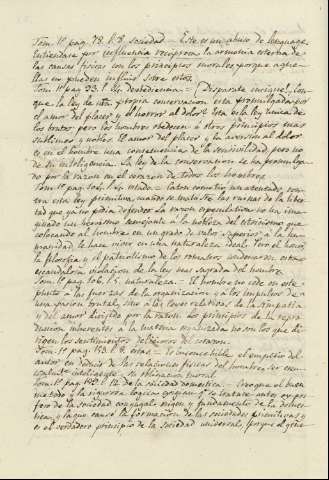 Tom. 1º pag. 78. l. 8. sociedad = Este es un abuso de lenguage.
Entiendase por influencia reciproca la armonia eterna de
las causas fisicas con los principios morales, porque aque
llas en pueden influir sobre estos.
Tom. 1º pag. 93. l. desobediencia = Disparate insigne!
que la ley de esta propia conservacion está promulgada por
el amor del placer y el horror al dolor. Esta es la ley unica de
los brutos, pero los hombres obedecen a otros principios mas
sublimes y nobles. El amor del placer y la aversion al dolor
es en el hombre una consecuencia de la sensibilidad pero no
de su inteligencia. La ley de la conservacion se ha promulga
do por la razon en el corazon de todos los hombres.
Tom. 1º pag. 104. l. estado = Caton cometió un atentado con
tra esta ley primitiva, cuando se mató tras las ruinas de la liber
tad que ya no podia defender. La razon especulativa se ha ima
ginado un heroismo semejante a la nobleza del estoicismo que
colocando al hombre en un grado de valor superior a la hu
manidad, le hace vivir en una naturaleza ideal. Pero el juicio,
la filosofia y el patriotismo de los romanos condenaron esta
escandalosa violacion de la ley mas sagrada del hombre.
Tom. 1º pag. 106. l. 5. naturaleza = El hombre no cede en este
punto a las fuerzas de la organizacion y a los impulsos de
una pasion brutal, sino a las leyes relativas de la simpatia
y del amor dirigido por la razon. Los principios de la repro
duccion inherentes a la materia organizada no son los que di
rigen los sentimientos deliciosos del corazon.
Tom. 1º pag. 113. l. 8. estas = Es inconcebible el empeño del
autor en deducir de las relaciones fisicas del hombre, ser esen
cialmte. inteligente, su obligacion moral.
Tom. 1º pag. 115. l. 12. de la sociedad domestica = Creo que el buen
metodo y la rigorosa logica exigian qe. se tratase antes de pro
feso de la sociedad conyugal, origen y fundamento de la domes
tica, y la que causó la formacion de las sociedades primitivas, y
es el verdadero principio de la sociedad universal, porque el gene